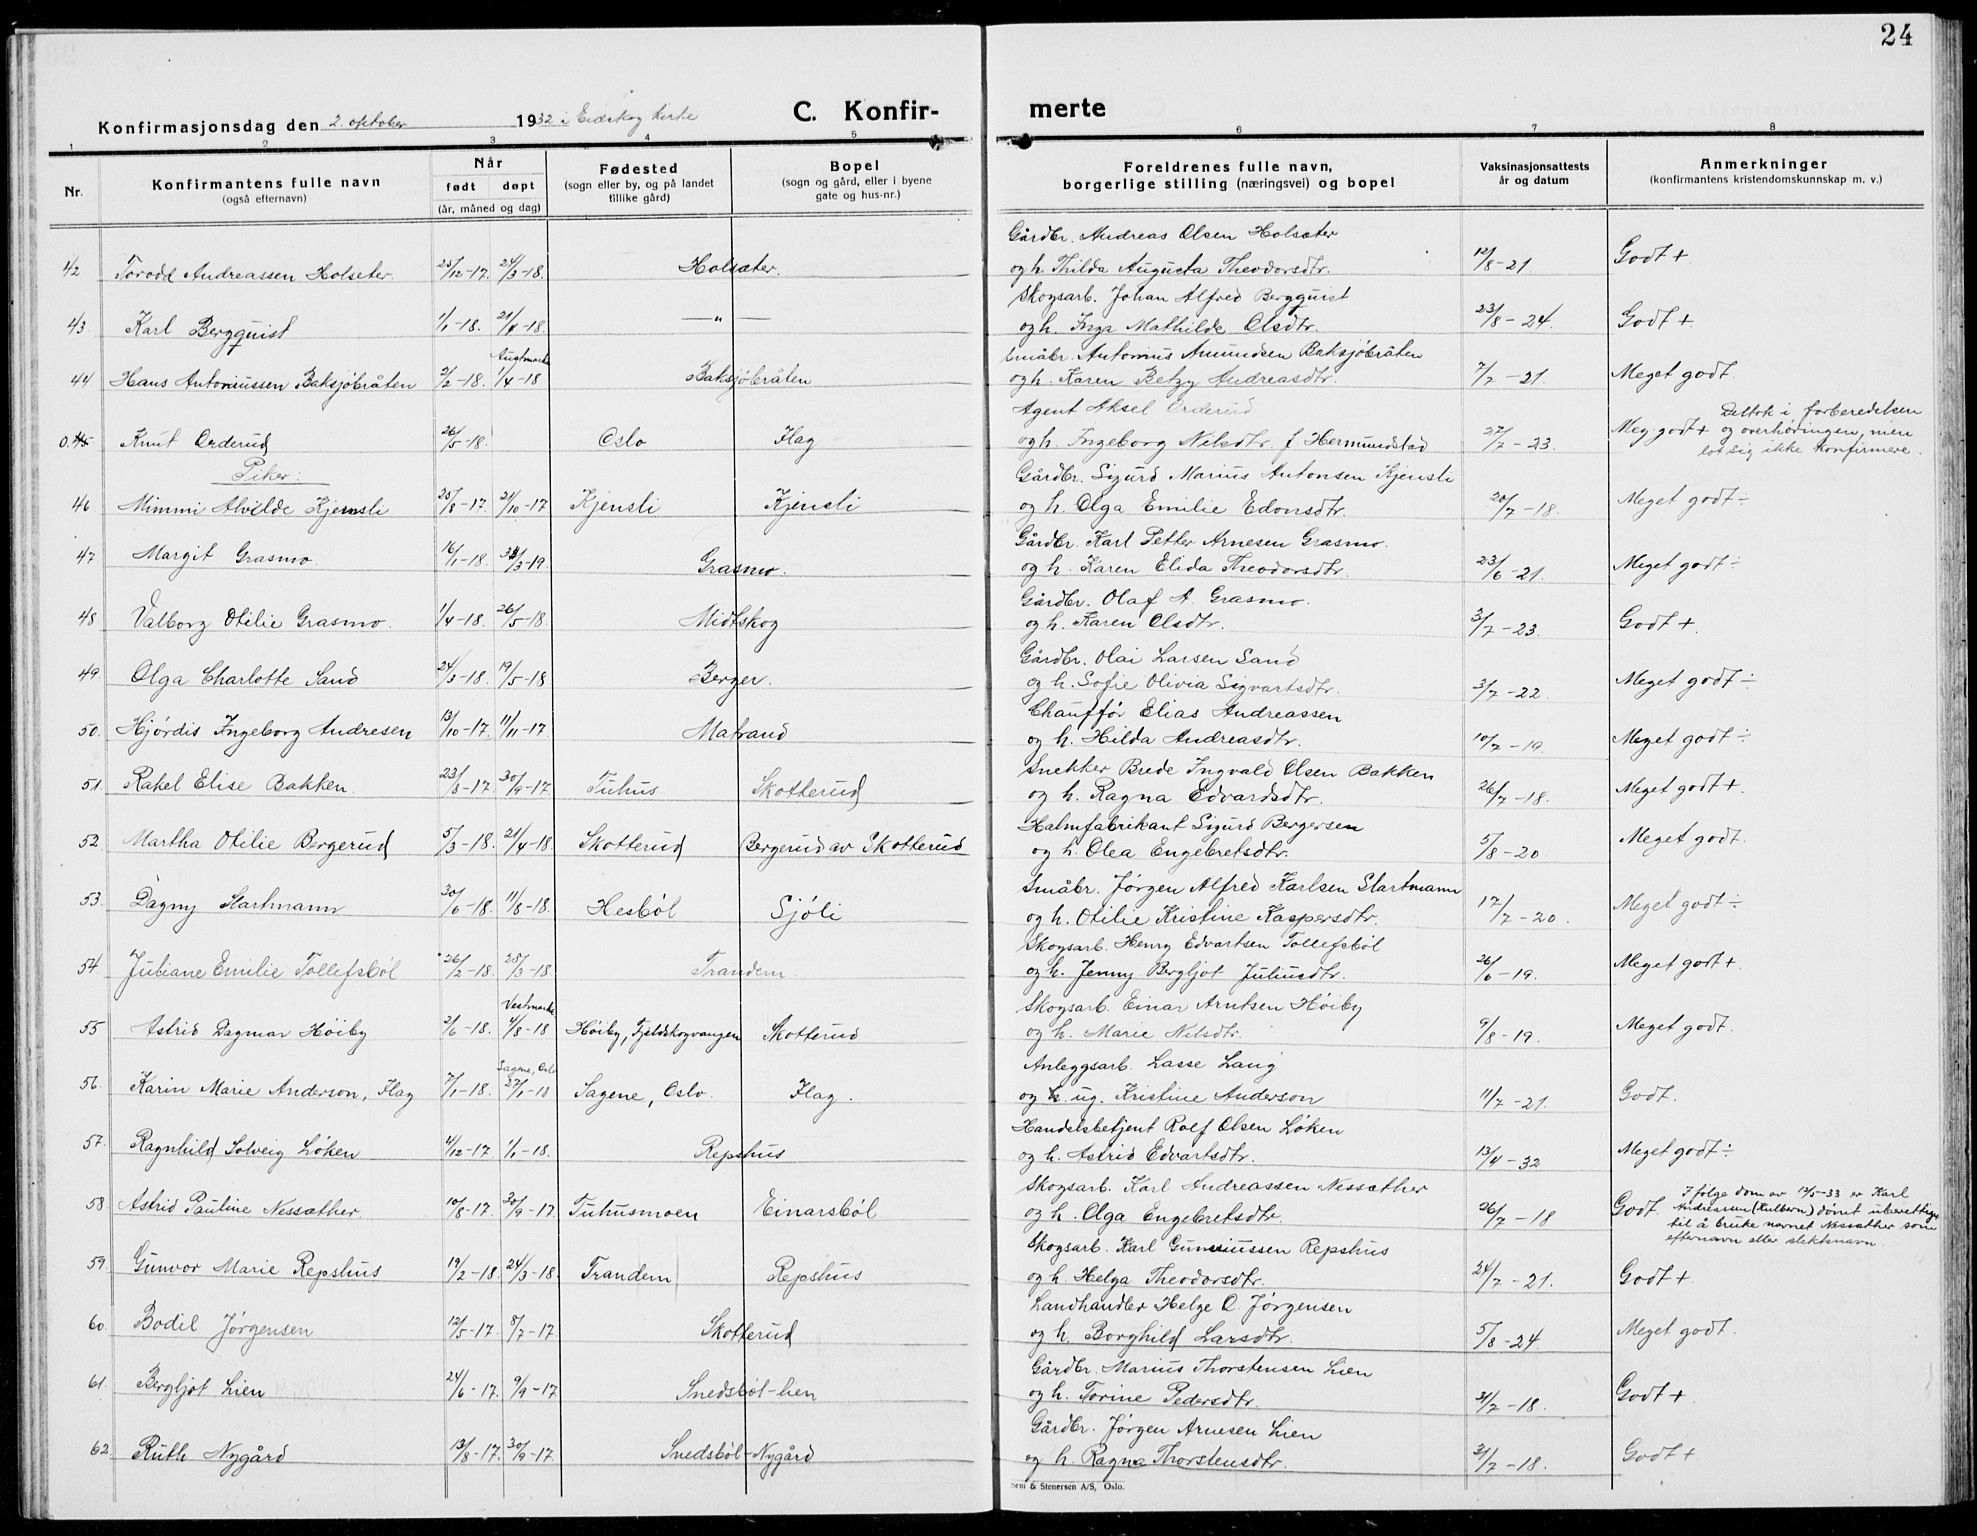 24
Konfirmasjonsdag den 2. oktober 1932 i Eidskog kirke C. Konfirmerte
1 2 3 4 5 6 7 8
Nr. Konfirmantens fulle navn (også efternavn) Når født døpt (år, måned og dag) Fødested (sogn eller by, og på landet tillike gård) Bopel (sogn og gård, eller i byene gate og hus-nr.) Foreldrenes fulle navn, borgerlige stilling (næringsvei) og bopel Vaksinasjonsattests år og datum Anmerkninger (konfirmantens kristendomskunnskap m. v.)
Gårdbr. Andreas Olsen Holsæter
42 Torodd Andreassen Holseter. 25/12-17. 24/3-18. Holsæter. og h. Thilda Augusta Theodorsdtr. 12/8-21. Godt +
Skogsarb. Johan Alfred Bergquist
43 Karl Bergquist 1/1-18. 21/4-18. —„— og h. Inga Mathilde Olsdtr. 23/8-24. Godt +
Austmarka Småbr. Antonius Amundsen Baksjöbråten
44 Hans Antoniussen Baksjöbråten 2/2-18. 1/4-18 Baksjöbråten og h. Karen Betzy Andreasdtr. 7/7-21. Meget godt.
Agent Aksel Orderud
0.45 Knut Orderud 26/5-18. Oslo Flag og h. Ingeborg Nilsdtr. f. Hermundstad 27/7-23. Meg. godt + Deltok i forberedelsen og overhöringen, men lot sig ikke konfirmere.
Piker:
Gårdbr. Sigurd Marius Antonsen Kjensli
46 Mimmi Alvilde Kjensli 25/8-17. 21/10-17 Kjensli Kjensli og h. Olga Emilie Edonsdtr. 20/7-18. Meget godt ÷
Gårdbr. Karl Petter Arnesen Grasmo.
47 Margit Grasmo. 16/1-18. /3-19. Grasmo. og h. Karen Elida Theodorsdtr. 23/6-21. Meget godt ÷
Gårdbr. Olaf A. Grasmo.
48 Valborg Otilie Grasmo. 1/4-18. 26/5-18. Midtskog og h. Karen Olsdtr. 3/7-23. Godt +
Gårdbr. Olai Larsen Sand
49. Olga Charlotte Sand 24/3-18. 19/5-18 Berger. og h. Sofie Olivia Sigvartsdtr. 3/7-22. Meget godt ÷
Chauffór Elias Andreassen
50. Hjórdis Ingeborg Andresen 13/10-17. 11/11-17. Matrand og h. Hilda Andreasdtr. 10/7-19. Meget godt ÷
Snekker Brede Ingvald Olsen Bakken
51. Rakel Elise Bakken. 23/8-17. 30/9-17. Tuhus Skotterud og h. Ragna Edvardsdtr. 26/7-18. Meget godt +.
Halmfabrikant Sigurd Bergersen
52 Martha Otilie Bergerud 5/3-18. 21/4-18. Skotterud Bergerud av Skotterud og h. Olea Engebretsdtr. 5/8-20. Meget godt.
Småbr. Jørgen Alfred Karlsen Startmann
53. Dagny Startmann 30/6-18. 11/8-18. Hesból Sjóli og h. Otilie Kristine Kaspersdtr. 17/7-20. Meget godt ÷
Skogsarb. Henry Edvartsen Tollefsból
54. Juliane Emilie Tollefsból 26/2-18. 28/3-18. Trandem. og h. Jenny Bergljot Juliusdtr. 26/6-19. Meget godt +.
Vestmarka Skogsarb. Einar Arntsen Höiby
55 Astrid Dagmar Höiby 2/6-18. 4/8-18 Höiby, Fjeldskogvangen Skotterud og h. Marie Nilsdtr. 9/8-19. Meget godt.
Sagene, Oslo Anleggsarb. Lasse Lang
56. Karin Marie Anderson, Flag 7/1-18. 27/1-18 Sagene, Oslo. Flag. og h. ug. Kristine Anderson 11/7-21. Godt.
Handelsbetjent Rolf Olsen Løken
57. Ragnhild Solveig Løken 4/12-17. 1/1-18. Repshus og h. Astrid Edvartsdtr. 13/4-32 Meget godt ÷
Skogsarb. Karl Andreassen Nessæther
58. Astrid Pauline Nessæther 10/8-17. 30/9-17. Tuhusmoen Einarsból og h. Olga Engebretsdtr. 26/7-18 Godt. Ifølge dom av 12/5-33 er Karl Andreassen (Kulbern) dömt uberettiget til å bruke navnet Nessæther som efternavn eller slektsnavn.
Skogsarb. Karl Gunerinssen Repshus
59. Gunvor Marie Repshus 19/2-18. 24/3-18 Trandem Repshus og h. Helga Theodorsdtr. 24/7-21. Godt +
Landhandler Helge O. Jørgensen
60. Bodil Jørgensen 12/5-17. 8/7-17 Skotterud og h. Borghild Larsdtr. 5/8-24. Meget godt.
Gårdbr. Marius Thorstensen Lien
61. Bergljot Lien 24/6-17. 9/9-17. Snedsböl-lien og h. Torine Pedersdtr. 31/7-18. Godt +
Gårdbr. Jørgen Arnesen Lien
62. Ruth Nygård 13/8-17. 30/9-17. Snedsböl-Nygård og h. Ragna Thorstensdtr. 31/7-18. Godt +
Sem & Stenersen A/S, Oslo.